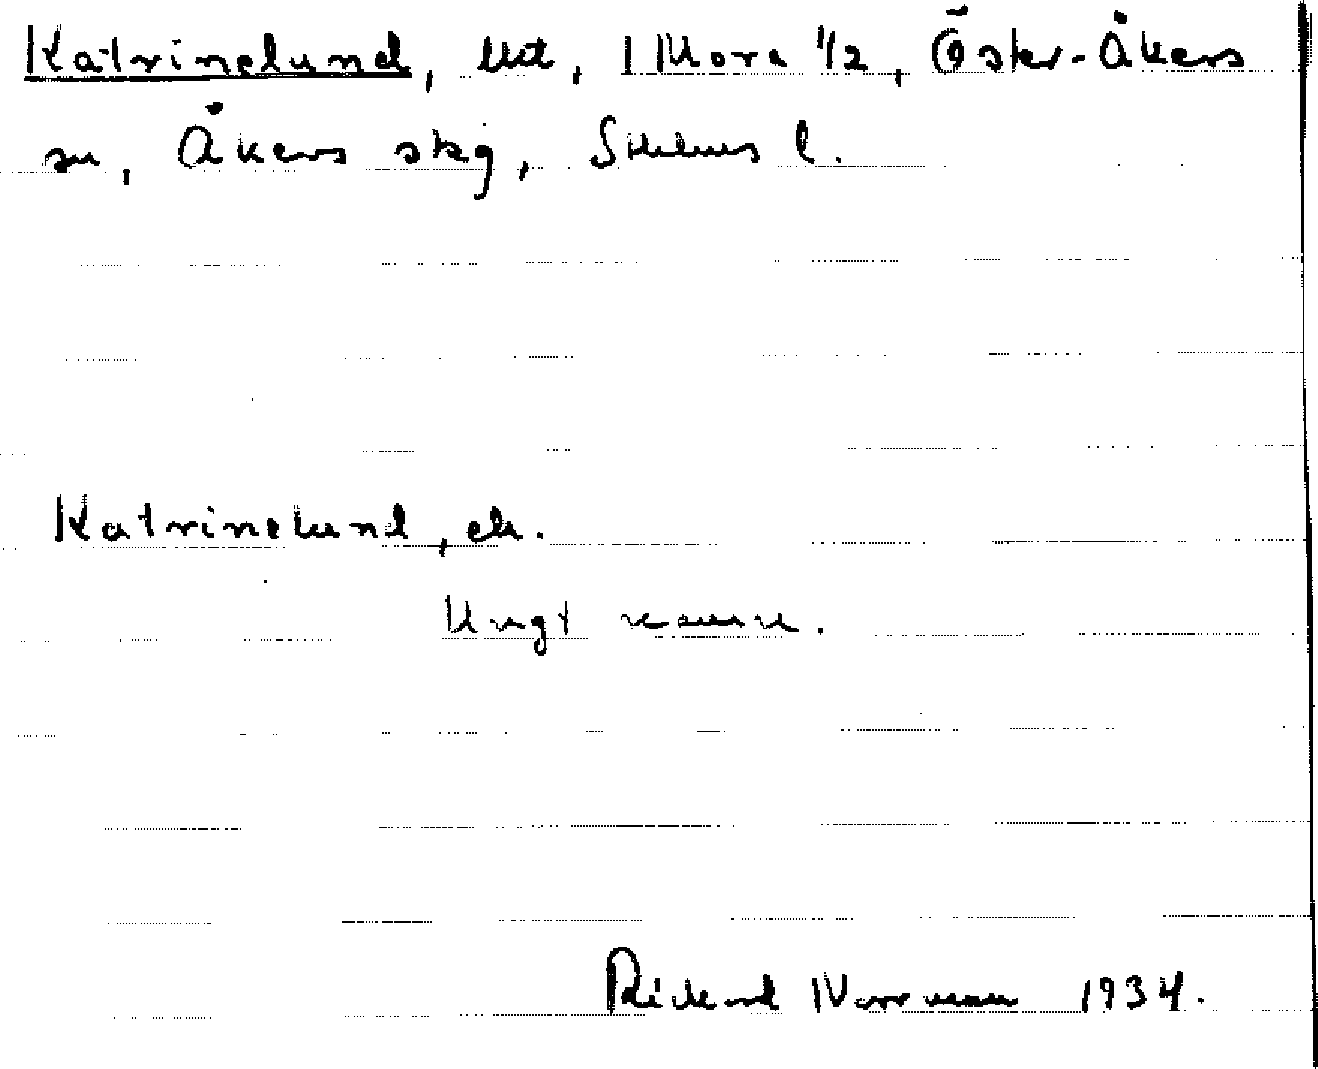 Katrinelund, lht, 1 Mora 1/2, Öster-Åkers
sn, Åkers skg, Sthlms l.
Katrinelund, ek.
Ungt namn.
Rickard Norrman 1934.